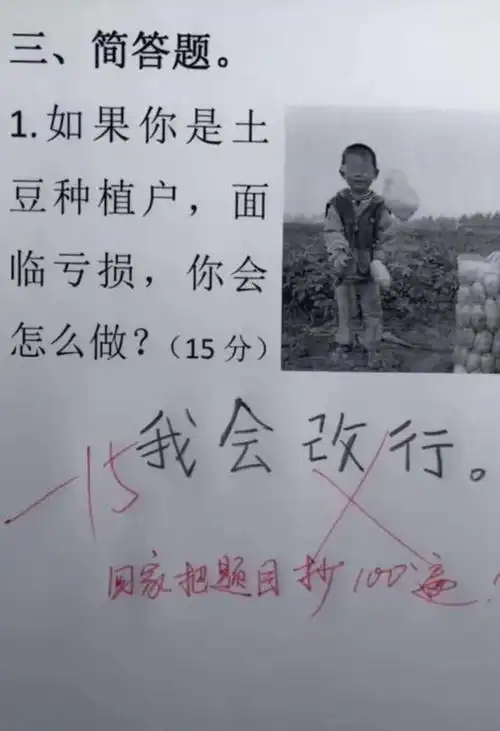 三、简答题。
1.如果你是土
豆种植户，面
临亏损，你会
怎么做？（15 分）
我会改行。
-15
回家把题目抄100遍！